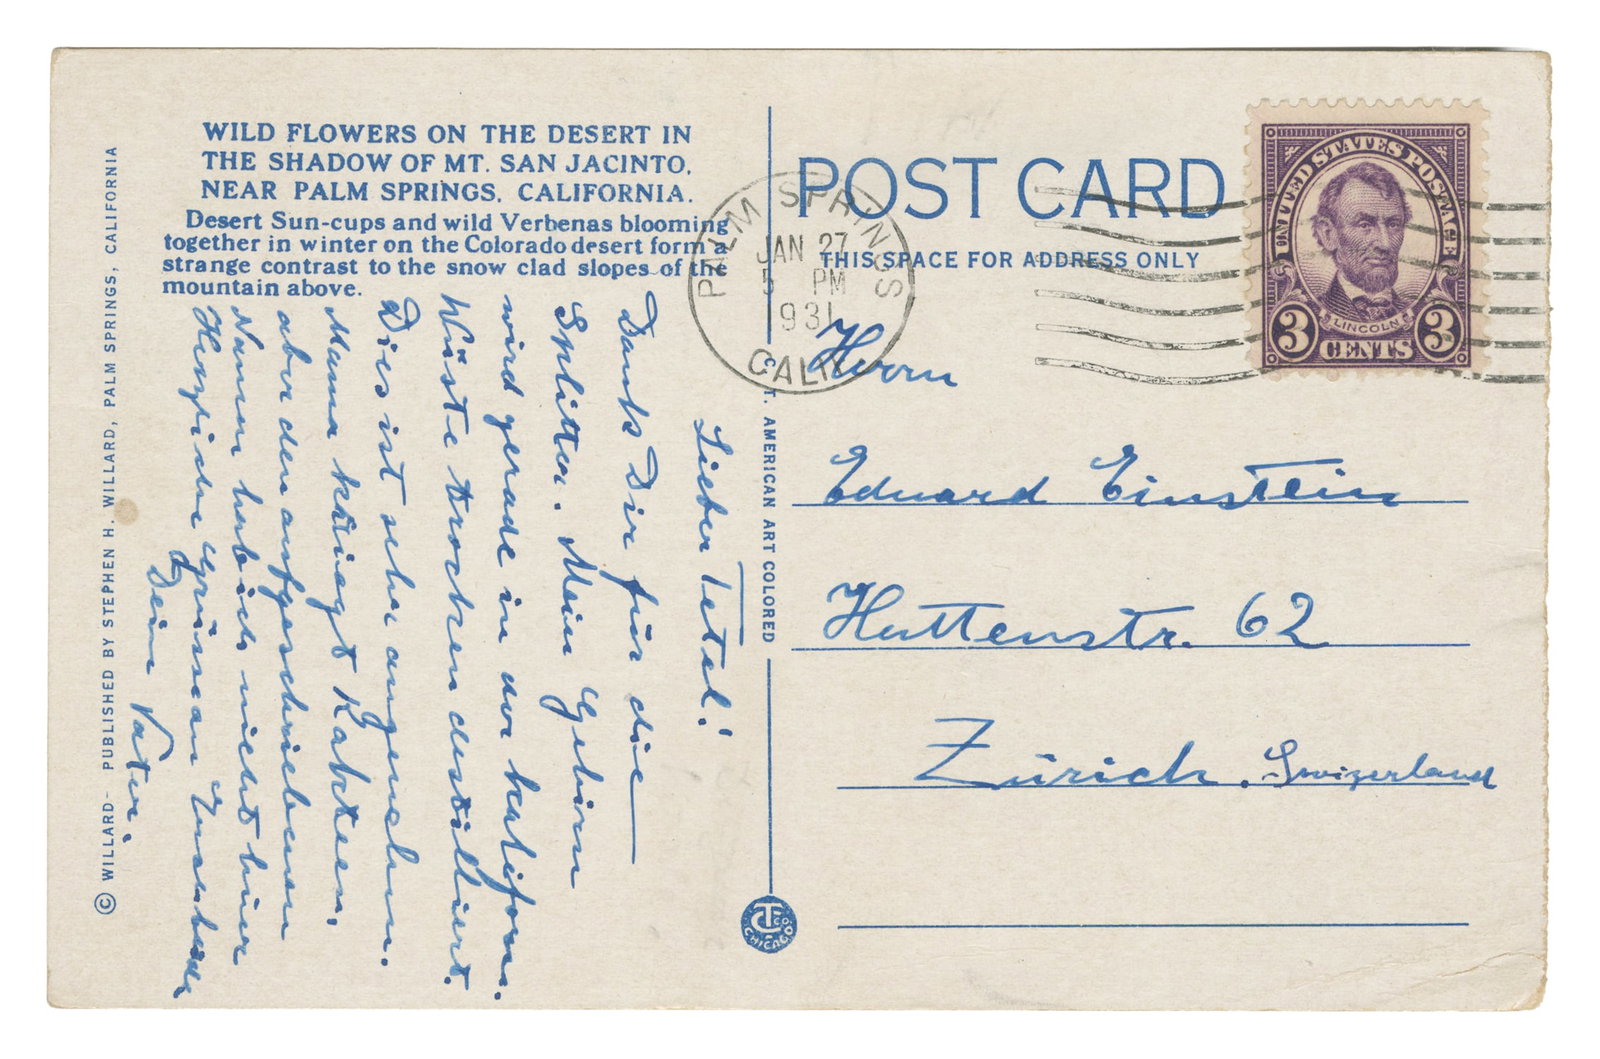 WILD FLOWERS ON THE DESERT IN
THE SHADOW OF MT. SAN JACINTO,
NEAR PALM SPRINGS, CALIFORNIA.
Desert Sun-cups and wild Verbenas blooming
together in winter on the Colorado desert form a
strange contrast to the snow clad slopes of the
mountain above.
Lieber Tetel!
Dank Dir für die
Splitter. Mein Gehirn
wird gerade in der kaliforn.
Wüste trocken destilliert.
Dies ist sehr angenehm.
Mama kriegt Kakteen,
aber den aufgeschriebenen
Namen hab ich nicht hier
Herzliche Grüsse an
Dein Vater.
© WILLARD - PUBLISHED BY STEPHEN H. WILLARD, PALM SPRINGS, CALIFORNIA
C. T. AMERICAN ART COLORED
CT CO. CHICAGO
POST CARD
THIS SPACE FOR ADDRESS ONLY
PALM SPRINGS
JAN 27
5 PM
1931
CALIF
UNITED STATES POSTAGE
LINCOLN
3 CENTS 3
Herrn
Eduard Einstein
Huttenstr. 62
Zürich. Swizerland